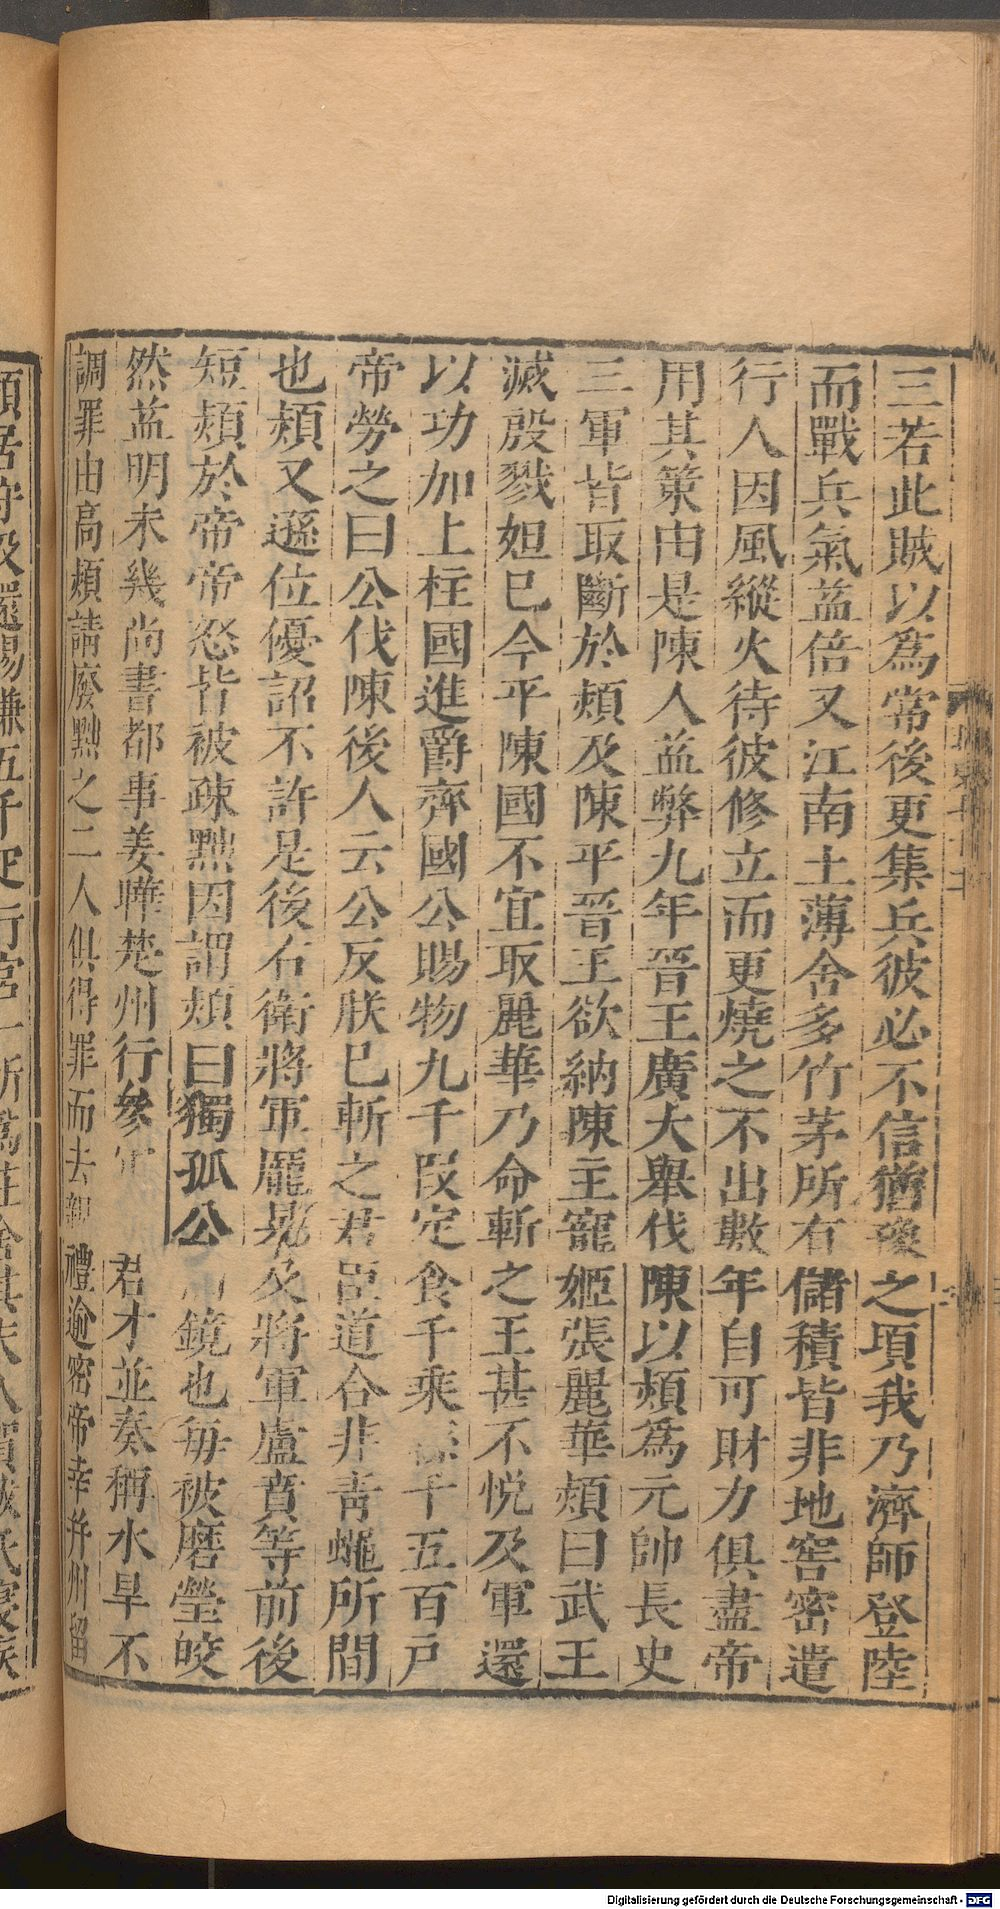 三若此賊以爲常後更集兵彼必不信猶豫之項我乃濟師登陸
而戰兵氣益倍又江南土薄舍多竹茅所有儲積皆非地窖密遣
行人因風縱火待彼修立而更燒之不出數年自可財力俱盡帝
用其策由是陳人益弊九年晉王廣大舉伐陳以熲爲元帥長史
三軍皆取斷於熲及陳平晉王欲納陳主寵姬張麗華熲曰武王
滅殷戮妲巳今平陳國不宜取麗華乃命斬之王甚不悅及軍還
以功加上柱國進爵齊國公賜物九千段定食千乘縣千五百戶
帝勞之曰公伐陳後人云公反朕巳斬之君臣道合非青蠅所間
也熲又遜位優詔不許是後右衛將軍龐晃及將軍盧賁等前後
短熲於帝帝怒皆被疎黜因謂熲曰獨孤公鏡也每被磨瑩皎
然益明未幾尚書都事姜曄楚州行參軍君才並奏稱水旱不
調罪由高熲請廢黜之二人俱得罪而去親禮逾密帝幸并州留
熲居守
五千疋行宮一所
Digitalisierung gefördert durch die Deutsche Forschungsgemeinschaft - DFG